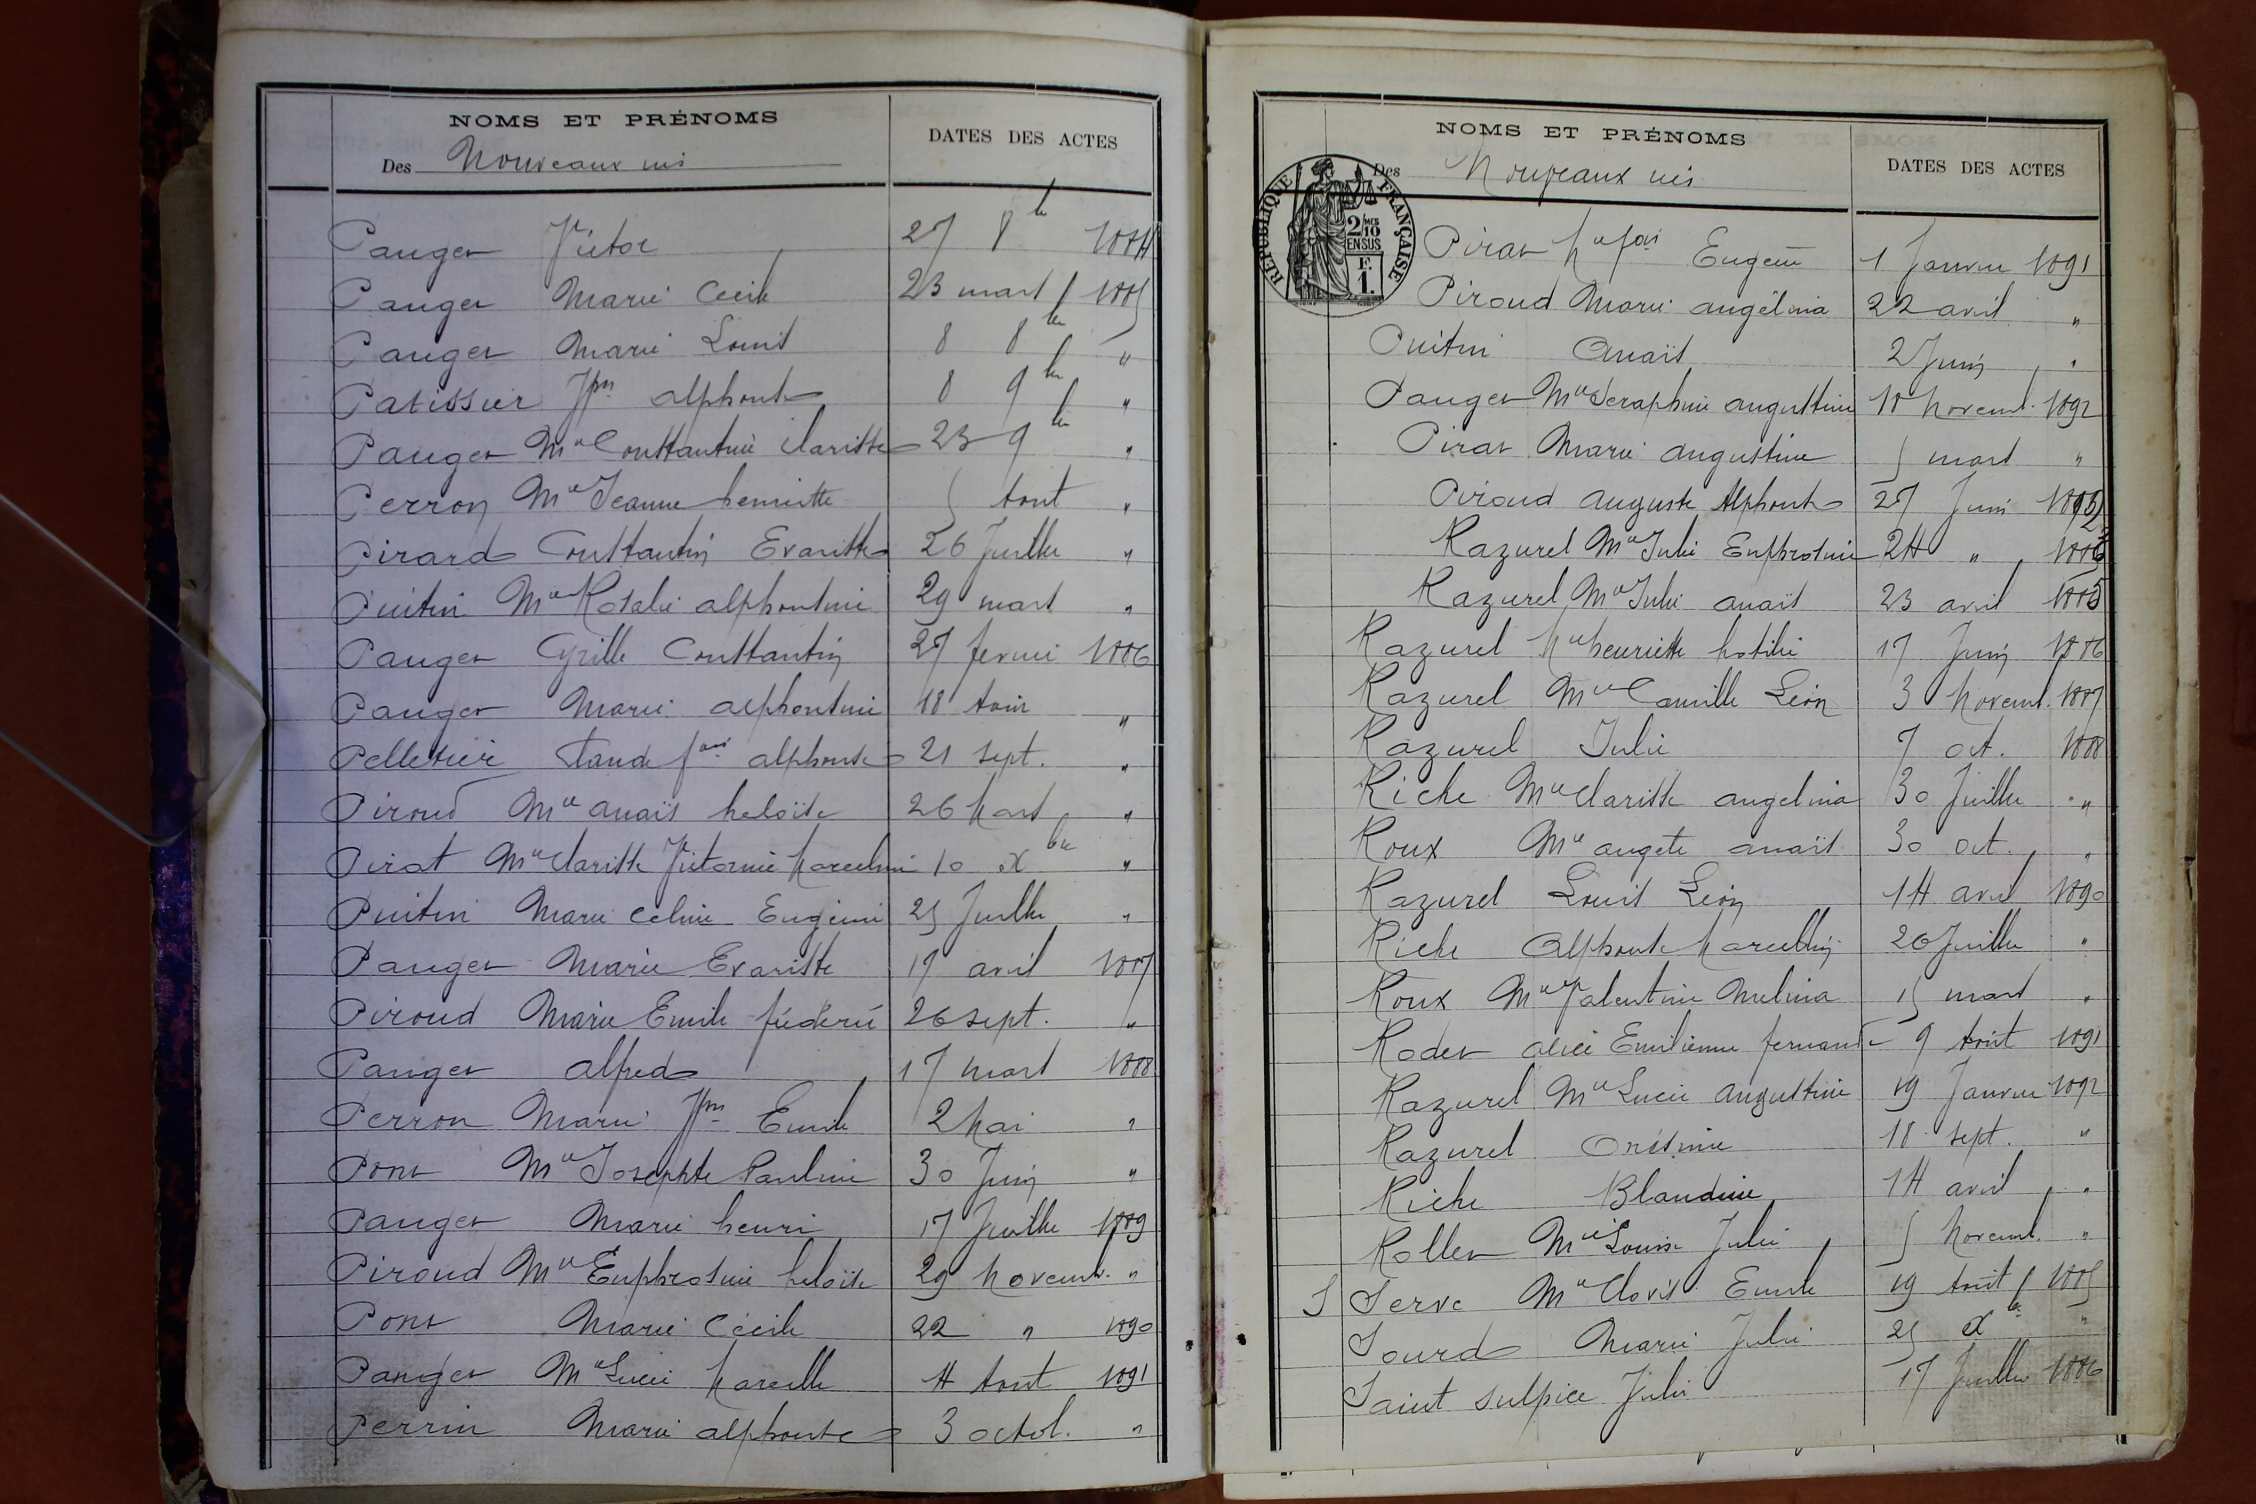 NOMS ET PRÉNOMS
DATES DES ACTES
Des Nouveaux nés
Pauger Victor 27 8bre 1884
Pauger Marie Cecile 23 mars 1885
Pauger Marie Louis 8 8bre "
Patissier Jph alphonse 8 9bre "
Pauger Mie Constantine Clarisse 23 9bre "
Perron Mie Jeanne henriette 5 Aout "
Pirard Constantin Evariste 26 Juillet "
Puitin Mie Rosalie alphonsine 29 mars "
Pauger Cyrille Constantin 27 fevrier 1886
Pauger Marie alphonsine 18 Aout "
Pelletier Claude fois alphonse 21 sept. "
Piroud Mie anaïs heloïse 26 Mars "
Pirat Mie Clarisse Victorine Marceline 10 Xbre "
Puitin Marie Celine Eugénie 25 Juillet "
Pauger Marie Evariste 17 avril 1887
Piroud Marie Emile fréderic 26 sept. "
Pauger alfred 17 Mars 1888
Perron Marie Jph Emile 2 Mai "
Pont Mie Josephte Pauline 30 Juin "
Pauger Marie henri 17 Juillet 1889
Piroud Mie Euphrosine heloïse 29 Novemb. "
Pont Marie Cécile 22 " 1890
Pauger Mie Lucie Marcelle 4 Aout 1891
Perrin Marie alphonse 3 octob. "
NOMS ET PRÉNOMS
DATES DES ACTES
Des Nouveaux nés
RÉPUBLIQUE FRANÇAISE
2/10 MES
EN SUS
F.
1.
Pirat fois Eugène 1 Janvier 1891
Piroud Marie angélina 22 avril "
Puitin Anaïs 2 Juin "
Pauger Mie Seraphine augustine 18 Novemb. 1892
Pirat Marie augustine 5 mars "
Piroud auguste Alphonse 27 Juin
Razurel Mie Julie Euphrosine 24 "
Razurel Mie Julie anaïs 23 avril 1885
Razurel Mie henriette 17 Juin 1886
Razurel Mie Camille Léon 3 Novemb. 1887
Razurel Julie 7 oct. 1888
Riche Mie Clarisse angelina 30 Juillet "
Roux Mie angele anaïs 30 oct. "
Razurel Louis Léon 14 avril 1890
Riche Alphonse Marcellin 26 Juillet "
Roux Mie Valentine Melina 15 mars "
Roder alice Emilienne fernande 9 Aout 1891
Razurel Mie Lucie augustine 19 Janvier 1892
Razurel Onésime 18 sept. "
Riche Blandine 14 avril "
Roller Mie Louise Julie 5 Novemb. "
S Serve Mie Clovis Emile 19 Aout 1885
Sourd Marie Julie 25 Xbre "
Saint sulpice Julie 17 Juillet 1886